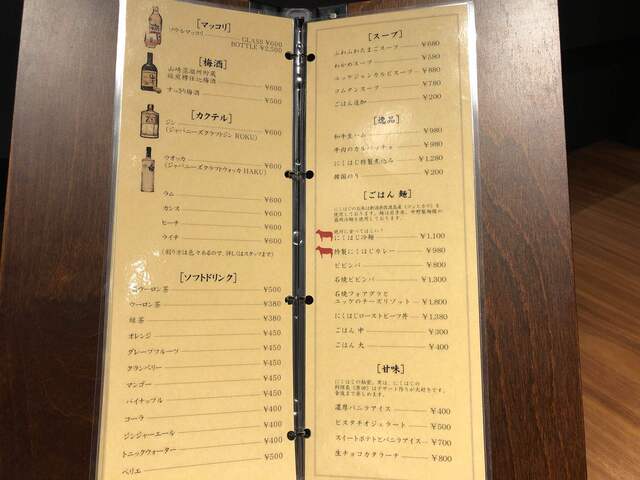 [マッコリ]
ソウルマッコリ GLASS ¥600
BOTTLE ¥2,500
[梅酒]
山崎蒸溜所貯蔵
焙煎樽仕込梅酒 ¥600
すっきり梅酒 ¥500
[カクテル]
ジン ¥600
(ジャパニーズクラフトジン ROKU)
ウオッカ ¥600
(ジャパニーズクラフトウォッカ HAKU)
ラム ¥600
カシス ¥600
ピーチ ¥600
ライチ ¥600
(割り方は色々あるので、詳しくはスタッフまで)
[ソフトドリンク]
ウーロン茶 ¥500
ウーロン茶 ¥380
緑茶 ¥380
オレンジ ¥450
グレープフルーツ ¥450
クランベリー ¥450
マンゴー ¥450
パイナップル ¥450
コーラ ¥400
ジンジャーエール ¥400
トニックウォーター ¥400
ペリエ ¥500
[スープ]
ふわふわたまごスープ ¥680
わかめスープ ¥580
ユッケジャンカルビスープ ¥880
コムタンスープ ¥780
ごはん追加 ¥200
[逸品]
和牛生ハム ¥980
牛肉のカルパッチョ ¥980
にくはじ特製煮込み ¥1,280
韓国のり ¥200
[ごはん 麺]
絶対に食べてほしい!
にくはじ冷麺 ¥1,100
特製にくはじカレー ¥980
ビビンバ ¥800
石焼ビビンバ ¥1,300
石焼フォアグラと
ユッケのチーズリゾット ¥1,800
にくはじローストビーフ丼 ¥1,380
ごはん 中 ¥300
ごはん 大 ¥400
[甘味]
濃厚バニラアイス ¥400
ピスタチオジェラート ¥500
スイートポテトとバニラアイス ¥700
生チョコカタラーナ ¥800